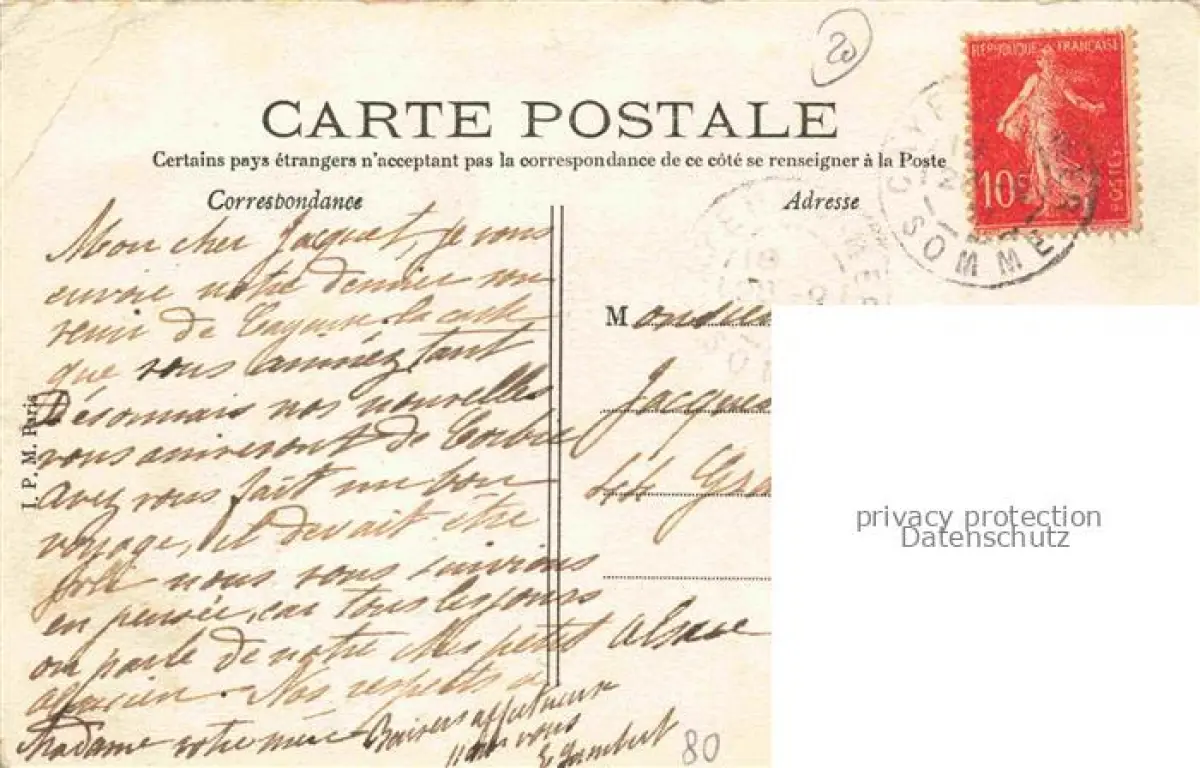 20
CARTE POSTALE
Certains pays étrangers n'acceptant pas la correspondance de ce côté se renseigner à la Poste
Correspondance
Adresse
RÉPUBLIQUE FRANÇAISE
10c
POSTES
CAYEUX S MER
SOMME
Mon cher Jacquet, je vous
envoie notre dernier sou
venir de Cayeux. la carte
que vous aimiez tant
Désormais nos nouvelles
vous arriveront de Corbie
avez vous fait un bon
voyage, il devait être
joli nous vous suivions
en pensée, car tous les jours
on parle de notre petit
alsacien. Nos respects à
Madame votre mère Baisers affectueux
pour vous
Jambert
I. P. M. Paris
Monsieur
Jacques
Gra
alsace
80
privacy protection
Datenschutz